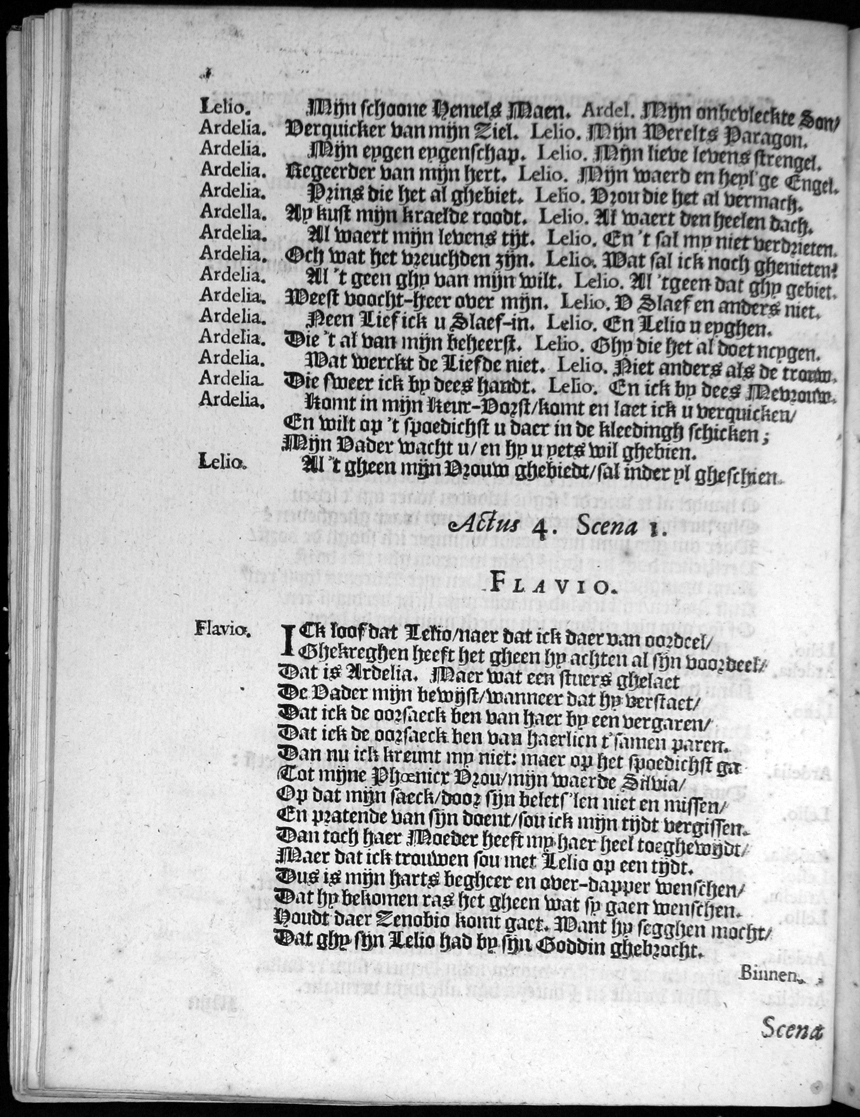 Lelio. Mijn schoone Hemels Maen. Ardel. Mijn onbevleckte Son/
Ardelia. Verquicker van mijn Ziel. Lelio. Mijn Werelts Paragon.
Ardelia. Mijn eygen eygenschap. Lelio. Mijn lieve levens strengel.
Ardelia. Regeerder van mijn hert. Lelio. Mijn waerd en heyl'ge Engel.
Ardelia. Prins die het al ghebiet. Lelio. Vrou die het al vermach.
Ardella. Ay kust mijn kraelde roodt. Lelio. Al waert den heelen dach.
Ardelia. Al waert mijn levens tijt. Lelio. En 't sal my niet verdrieten.
Ardelia. Och wat het vreuchden zijn. Lelio. Wat sal ick noch ghenieten?
Ardelia. Al 't geen ghy van mijn wilt. Lelio. Al 'tgeen dat ghy gebiet.
Ardelia. Weest voocht-heer over mijn. Lelio. V Slaef en anders niet.
Ardelia. Neen Lief ick u Slaef-in. Lelio. En Lelio u eyghen.
Ardelia. Die 't al van mijn beheerst. Lelio. Ghy die het al doet neygen.
Ardelia. Wat werckt de Liefde niet. Lelio. Niet anders als de trouw.
Ardelia. Die sweer ick by dees handt. Lelio. En ick by dees Mevrouw.
Ardelia. Komt in mijn Keur-Vorst/komt en laet ick u verquicken/
En wilt op 't spoedichst u daer in de kleedingh schicken;
Mijn Vader wacht u/ en hy u yets wil ghebien.
Lelio. Al 't gheen mijn Vrouw ghebiedt/sal inder yl gheschien.
Actus 4. Scena 1.
FLAVIO.
Flavio. ICk loof dat Lelio/naer dat ick daer van oordeel/
Ghekreghen heeft het gheen hy achten al sijn voordeel/
Dat is Ardelia. Maer wat een stuers ghelaet
De Vader mijn bewijst/wanneer dat hy verstaet/
Dat ick de oorsaeck ben van haer by een vergaren/
Dat ick de oorsaeck ben van haerlien t'samen paren.
Dan nu ick kreunt my niet: maer op het spoedichst ga
Tot mijne Phœnicx Vrou/mijn waerde Silvia/
Op dat mijn saeck/door sijn belets'len niet en missen/
En pratende van sijn doent/sou ick mijn tijdt vergissen.
Dan toch haer Moeder heeft my haer heel toeghewijdt/
Maer dat ick trouwen sou met Lelio op een tijdt.
Dus is mijn harts begheer en over-dapper wenschen/
Dat hy bekomen ras het gheen wat sy gaen wenschen.
Houdt daer Zenobio komt gaet. Want hy segghen mocht/
Dat ghy sijn Lelio had by sijn Goddin ghebrocht.
Binnen.
Scena